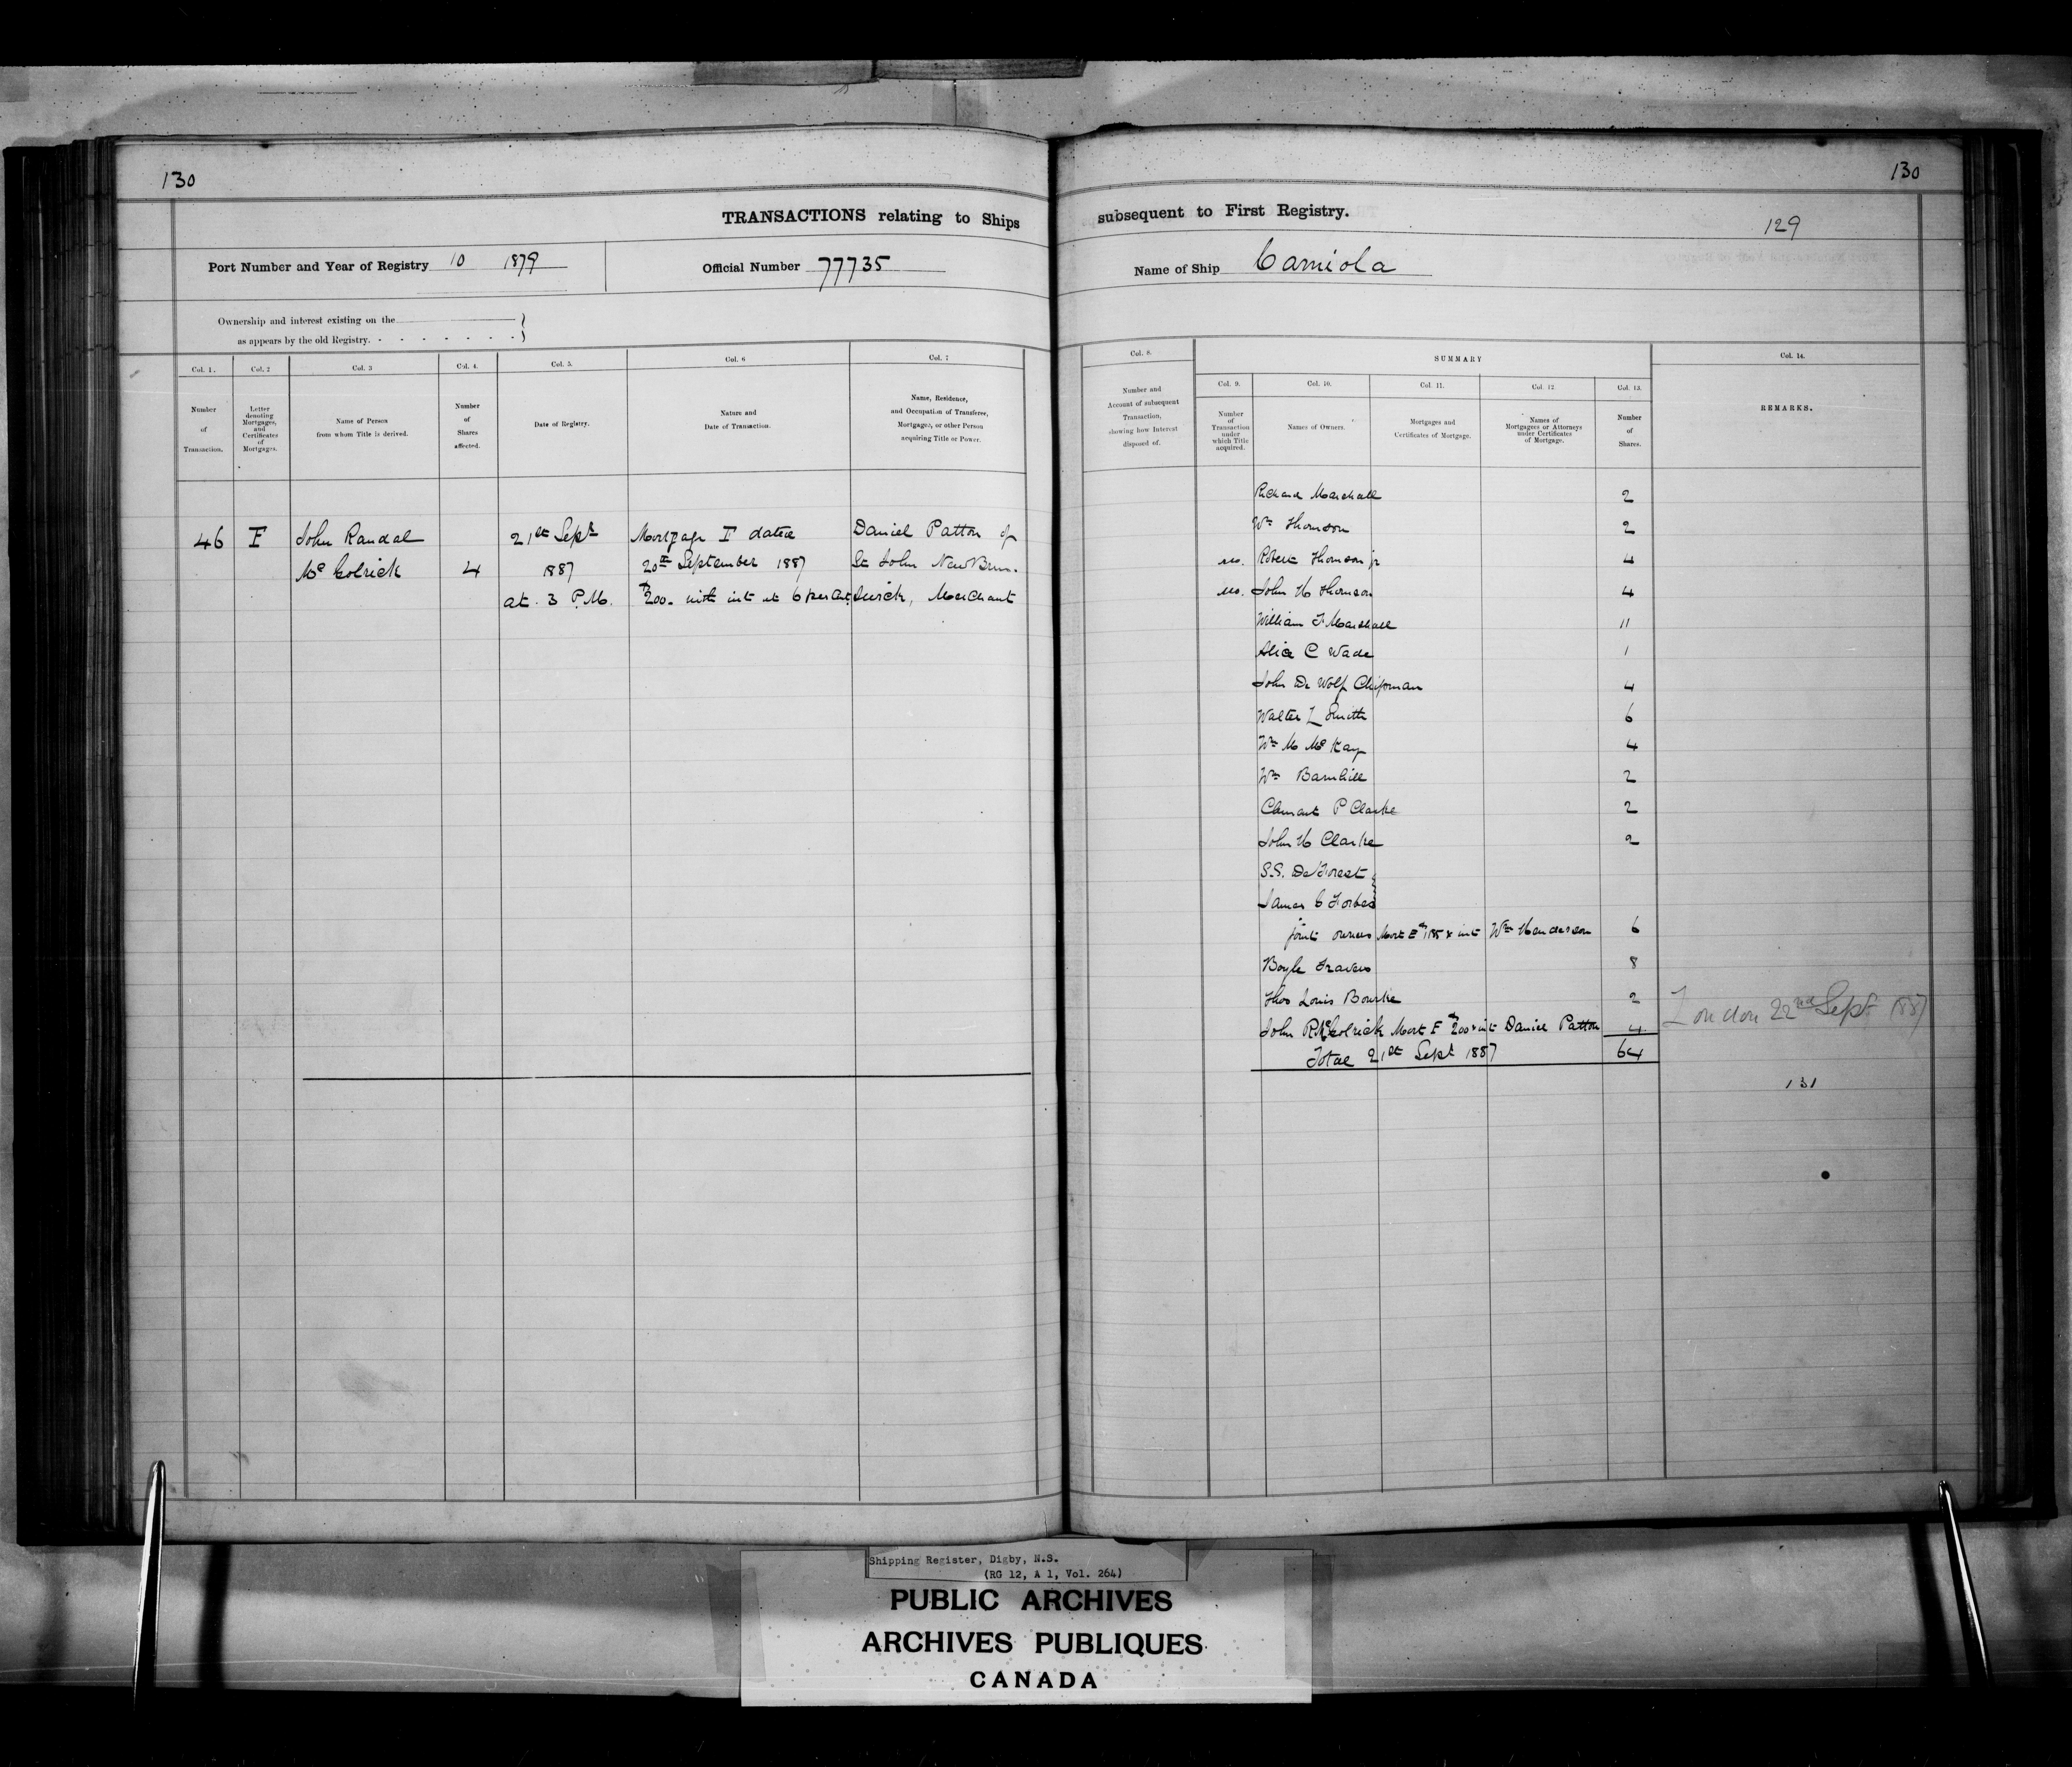 130
TRANSACTIONS relating to Ships
Port Number and Year of Registry 10 1879
Official Number 77735
Ownership and interest existing on the
as appears by the old Registry.
Col. 1.
Col. 2
Col. 3
Col. 4.
Col. 5.
Col. 6
Col. 7
Number
of
Transaction.
Letter
denoting
Mortgages,
and
Certificates
of
Mortgages.
Name of Person
from whom Title is derived.
Number
of
Shares
affected.
Date of Registry.
Nature and
Date of Transaction.
Name, Residence,
and Occupation of Transferee,
Mortgagee, or other Person
acquiring Title or Power.
46 F John Randal 21st Sept Mortgage F dated Daniel Patton of
Mc Colrick 4 1887 20th September 1887 St John New Bruns-
at 3 P.M. $200. with int at 6 per cent. wick, Merchant
130
subsequent to First Registry.
129
Name of Ship Carniola
Col. 8.
Number and
Account of subsequent
Transaction,
showing how Interest
disposed of.
SUMMARY
Col. 9.
Col. 10.
Col. 11.
Col. 12
Col. 13.
Number
of
Transaction
under
which Title
acquired.
Names of Owners.
Mortgages and
Certificates of Mortgage.
Names of
Mortgagees or Attorneys
under Certificates
of Mortgage.
Number
of
Shares.
Col. 14.
REMARKS.
Richard Marshall 2
Wm Thomson 2
Robert Thomson jr 4
John H Thomson 4
William F Marshall 11
Alice C Wade 1
John De Wolf Chipman 4
Walter L Smith 6
Wm M McKay 4
Wm Barnhill 2
Clement P Clarke 2
John H Clarke 2
S.S. De Forest
James G Forbes
joint owners Mort E $185 & int Wm Henderson 6
Boyle Travers 8
Thos Louis Bourke 2
John R McColrick Mort F $200 & int Daniel Patton 4
London 22nd Sept 1887
Total 21st Sept 1887 64
131
Shipping Register, Digby, N.S.
(RG 12, A 1, Vol. 264)
PUBLIC ARCHIVES
ARCHIVES PUBLIQUES
CANADA